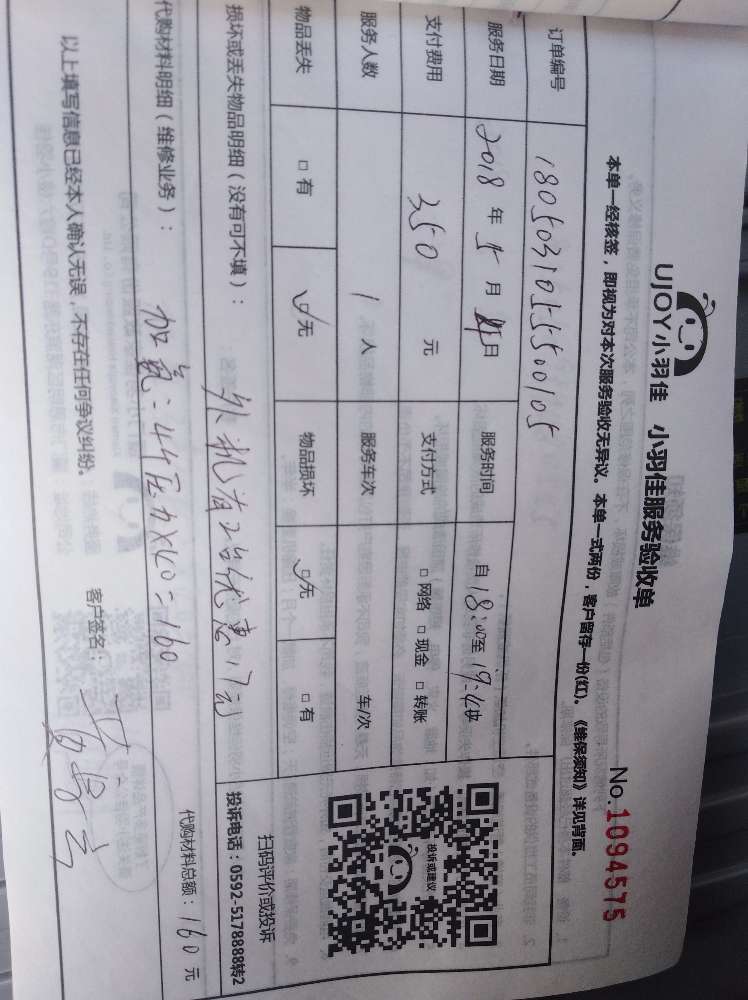 UJOY小羽佳 小羽佳服务验收单
No.1094575
本单一经核签，即视为对本次服务验收无异议。本单一式两份，客户留存一份(红)。《维保须知》详见背面。
订单编号 18050310555500105
服务日期 2018 年 5 月 日 服务时间 自 18:00至 19:
支付费用 350 元 支付方式 □ 网络 □ 现金 □ 转账
服务人数 1 人 服务车次 车/次
物品丢失 □ 有 ☑ 无 物品损坏 ☑ 无 □ 有
损坏或丢失物品明细（没有可不填）：
外机清2台优惠17元
代购材料明细（维修业务）：
加氟：4个压力×40=160
代购材料总额：160 元
投诉或建议
扫码评价或投诉
投诉电话：0592-5178888转2
以上填写信息已经本人确认无误，不存在任何争议纠纷。
客户签名：